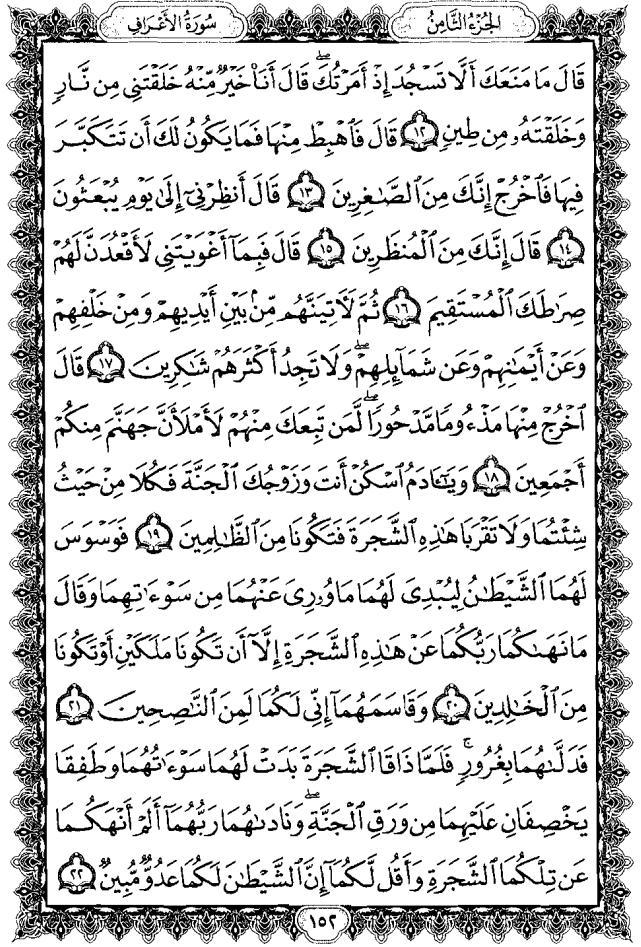 الجُزءُ الثَّامِنُ
سُورَةُ الأَعْرَافِ
قَالَ مَا مَنَعَكَ أَلَّا تَسْجُدَ إِذْ أَمَرْتُكَ ۖ قَالَ أَنَا۠ خَيْرٌ مِّنْهُ خَلَقْتَنِى مِن نَّارٍ
وَخَلَقْتَهُۥ مِن طِينٍ ١٢ قَالَ فَٱهْبِطْ مِنْهَا فَمَا يَكُونُ لَكَ أَن تَتَكَبَّرَ
فِيهَا فَٱخْرُجْ إِنَّكَ مِنَ ٱلصَّٰغِرِينَ ١٣ قَالَ أَنظِرْنِىٓ إِلَىٰ يَوْمِ يُبْعَثُونَ
١٤ قَالَ إِنَّكَ مِنَ ٱلْمُنظَرِينَ ١٥ قَالَ فَبِمَآ أَغْوَيْتَنِى لَأَقْعُدَنَّ لَهُمْ
صِرَٰطَكَ ٱلْمُسْتَقِيمَ ١٦ ثُمَّ لَءَاتِيَنَّهُم مِّنۢ بَيْنِ أَيْدِيهِمْ وَمِنْ خَلْفِهِمْ
وَعَنْ أَيْمَٰنِهِمْ وَعَن شَمَآئِلِهِمْ ۖ وَلَا تَجِدُ أَكْثَرَهُمْ شَٰكِرِينَ ١٧ قَالَ
ٱخْرُجْ مِنْهَا مَذْءُومًا مَّدْحُورًا ۖ لَّمَن تَبِعَكَ مِنْهُمْ لَأَمْلَأَنَّ جَهَنَّمَ مِنكُمْ
أَجْمَعِينَ ١٨ وَيَٰٓـَٔادَمُ ٱسْكُنْ أَنتَ وَزَوْجُكَ ٱلْجَنَّةَ فَكُلَا مِنْ حَيْثُ
شِئْتُمَا وَلَا تَقْرَبَا هَٰذِهِ ٱلشَّجَرَةَ فَتَكُونَا مِنَ ٱلظَّٰلِمِينَ ١٩ فَوَسْوَسَ
لَهُمَا ٱلشَّيْطَٰنُ لِيُبْدِىَ لَهُمَا مَا وُۥرِىَ عَنْهُمَا مِن سَوْءَٰتِهِمَا وَقَالَ
مَا نَهَىٰكُمَا رَبُّكُمَا عَنْ هَٰذِهِ ٱلشَّجَرَةِ إِلَّآ أَن تَكُونَا مَلَكَيْنِ أَوْ تَكُونَا
مِنَ ٱلْخَٰلِدِينَ ٢٠ وَقَاسَمَهُمَآ إِنِّى لَكُمَا لَمِنَ ٱلنَّٰصِحِينَ ٢١
فَدَلَّىٰهُمَا بِغُرُورٍ ۚ فَلَمَّا ذَاقَا ٱلشَّجَرَةَ بَدَتْ لَهُمَا سَوْءَٰتُهُمَا وَطَفِقَا
يَخْصِفَانِ عَلَيْهِمَا مِن وَرَقِ ٱلْجَنَّةِ ۖ وَنَادَىٰهُمَا رَبُّهُمَآ أَلَمْ أَنْهَكُمَا
عَن تِلْكُمَا ٱلشَّجَرَةِ وَأَقُل لَّكُمَآ إِنَّ ٱلشَّيْطَٰنَ لَكُمَا عَدُوٌّ مُّبِينٌ ٢٢
١٥٢